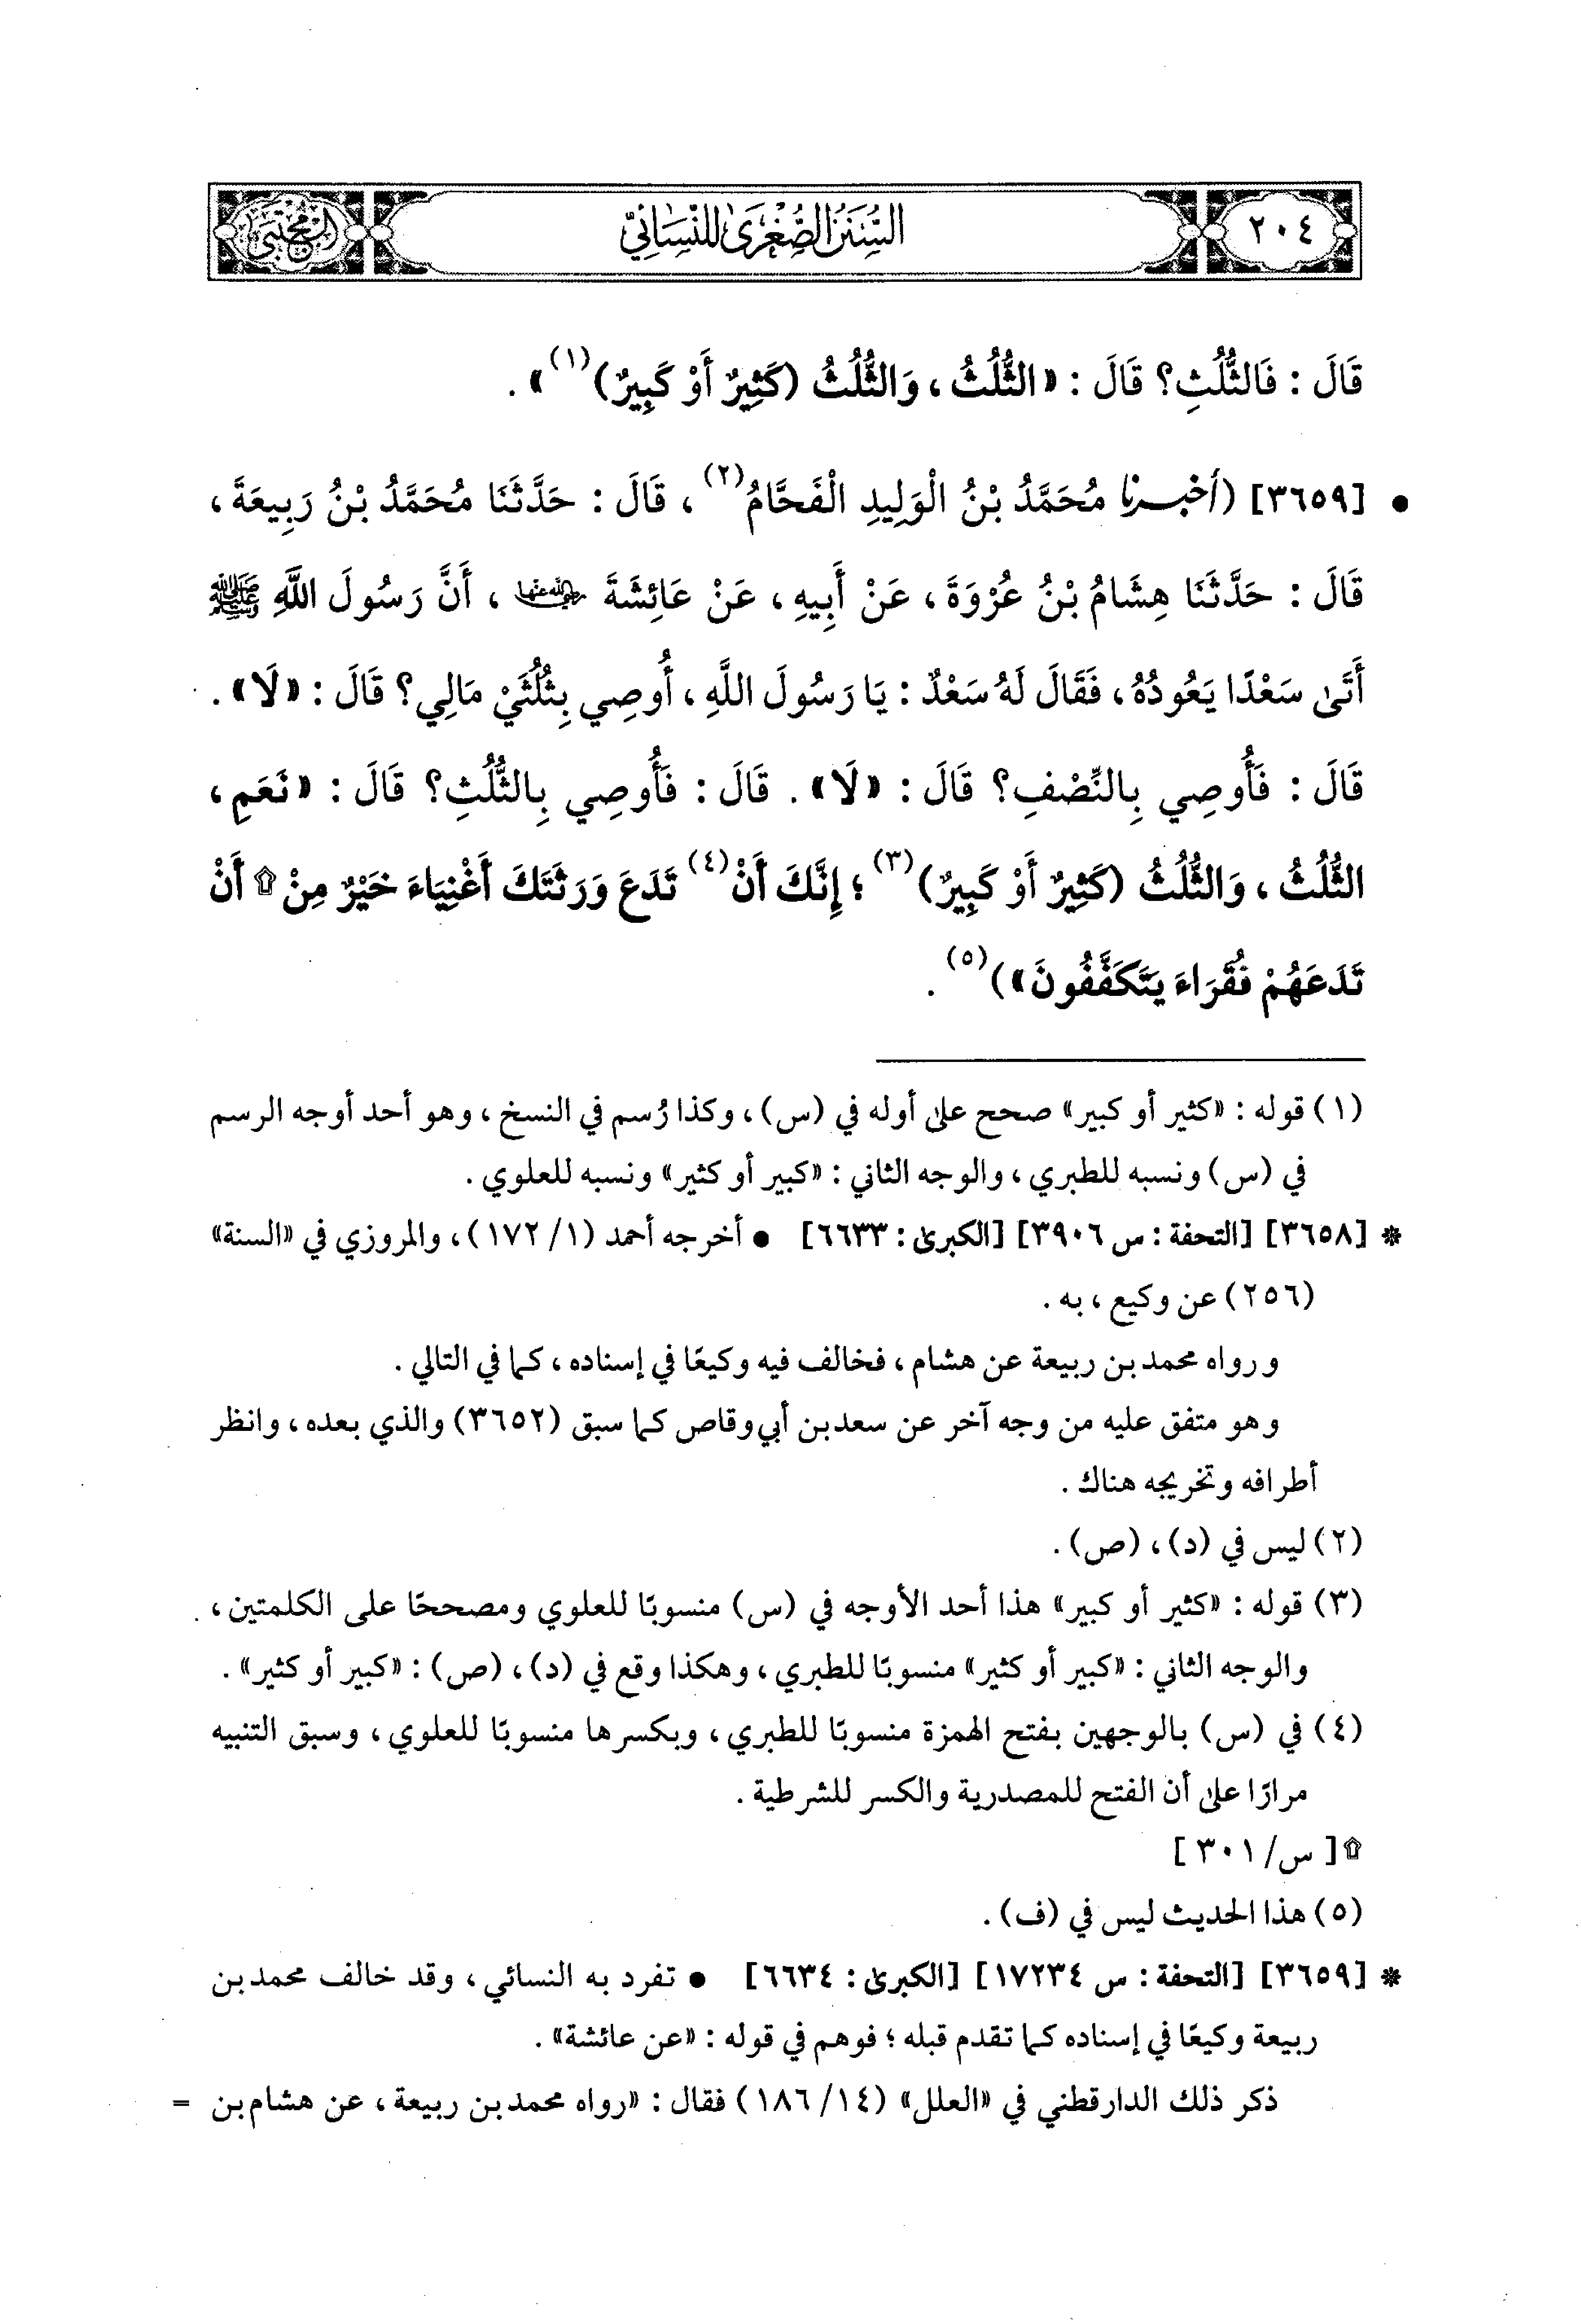 ٢٠٤
السُّنَنُ الصُّغْرَىٰ لِلنَّسَائِيِّ
المجتبى
قَالَ : فَالثُّلُثِ؟ قَالَ : «الثُّلُثُ ، وَالثُّلُثُ (كَثِيرٌ أَوْ كَبِيرٌ)(١)» .
• [٣٦٥٩] (أخبرنا مُحَمَّدُ بْنُ الْوَلِيدِ الْفَحَّامُ(٢) ، قَالَ : حَدَّثَنَا مُحَمَّدُ بْنُ رَبِيعَةَ ،
قَالَ : حَدَّثَنَا هِشَامُ بْنُ عُرْوَةَ ، عَنْ أَبِيهِ ، عَنْ عَائِشَةَ رضي الله عنها ، أَنَّ رَسُولَ اللَّهِ ﷺ
أَتَىٰ سَعْدًا يَعُودُهُ ، فَقَالَ لَهُ سَعْدٌ : يَا رَسُولَ اللَّهِ ، أُوصِي بِثُلُثَيْ مَالِي؟ قَالَ : «لَا» .
قَالَ : فَأُوصِي بِالنِّصْفِ؟ قَالَ : «لَا» . قَالَ : فَأُوصِي بِالثُّلُثِ؟ قَالَ : «نَعَمِ ،
الثُّلُثُ ، وَالثُّلُثُ (كَثِيرٌ أَوْ كَبِيرٌ)(٣) ؛ إِنَّكَ أَنْ(٤) تَدَعَ وَرَثَتَكَ أَغْنِيَاءَ خَيْرٌ مِنْ ۩ أَنْ
تَدَعَهُمْ فُقَرَاءَ يَتَكَفَّفُونَ»)(٥) .
(١) قوله : «كثير أو كبير» صحح على أوله في (س) ، وكذا رُسم في النسخ ، وهو أحد أوجه الرسم
في (س) ونسبه للطبري ، والوجه الثاني : «كبير أو كثير» ونسبه للعلوي .
* [٣٦٥٨] [التحفة : س ٣٩٠٦] [الكبرىٰ : ٦٦٣٣] • أخرجه أحمد (١/ ١٧٢) ، والمروزي في «السنة»
(٢٥٦) عن وكيع ، به .
ورواه محمد بن ربيعة عن هشام ، فخالف فيه وكيعًا في إسناده ، كما في التالي .
وهو متفق عليه من وجه آخر عن سعد بن أبي وقاص كما سبق (٣٦٥٢) والذي بعده ، وانظر
أطرافه وتخريجه هناك .
(٢) ليس في (د) ، (ص) .
(٣) قوله : «كثير أو كبير» هذا أحد الأوجه في (س) منسوبًا للعلوي ومصححًا على الكلمتين ،
والوجه الثاني : «كبير أو كثير» منسوبًا للطبري ، وهكذا وقع في (د) ، (ص) : «كبير أو كثير» .
(٤) في (س) بالوجهين بفتح الهمزة منسوبًا للطبري ، وبكسرها منسوبًا للعلوي ، وسبق التنبيه
مرارًا على أن الفتح للمصدرية والكسر للشرطية .
۩ [ س/ ٣٠١ ]
(٥) هذا الحديث ليس في (ف) .
* [٣٦٥٩] [التحفة : س ١٧٢٣٤] [الكبرىٰ : ٦٦٣٤] • تفرد به النسائي ، وقد خالف محمد بن
ربيعة وكيعًا في إسناده كما تقدم قبله ؛ فوهم في قوله : «عن عائشة» .
ذكر ذلك الدارقطني في «العلل» (١٤/ ١٨٦) فقال : «رواه محمد بن ربيعة ، عن هشام بن =